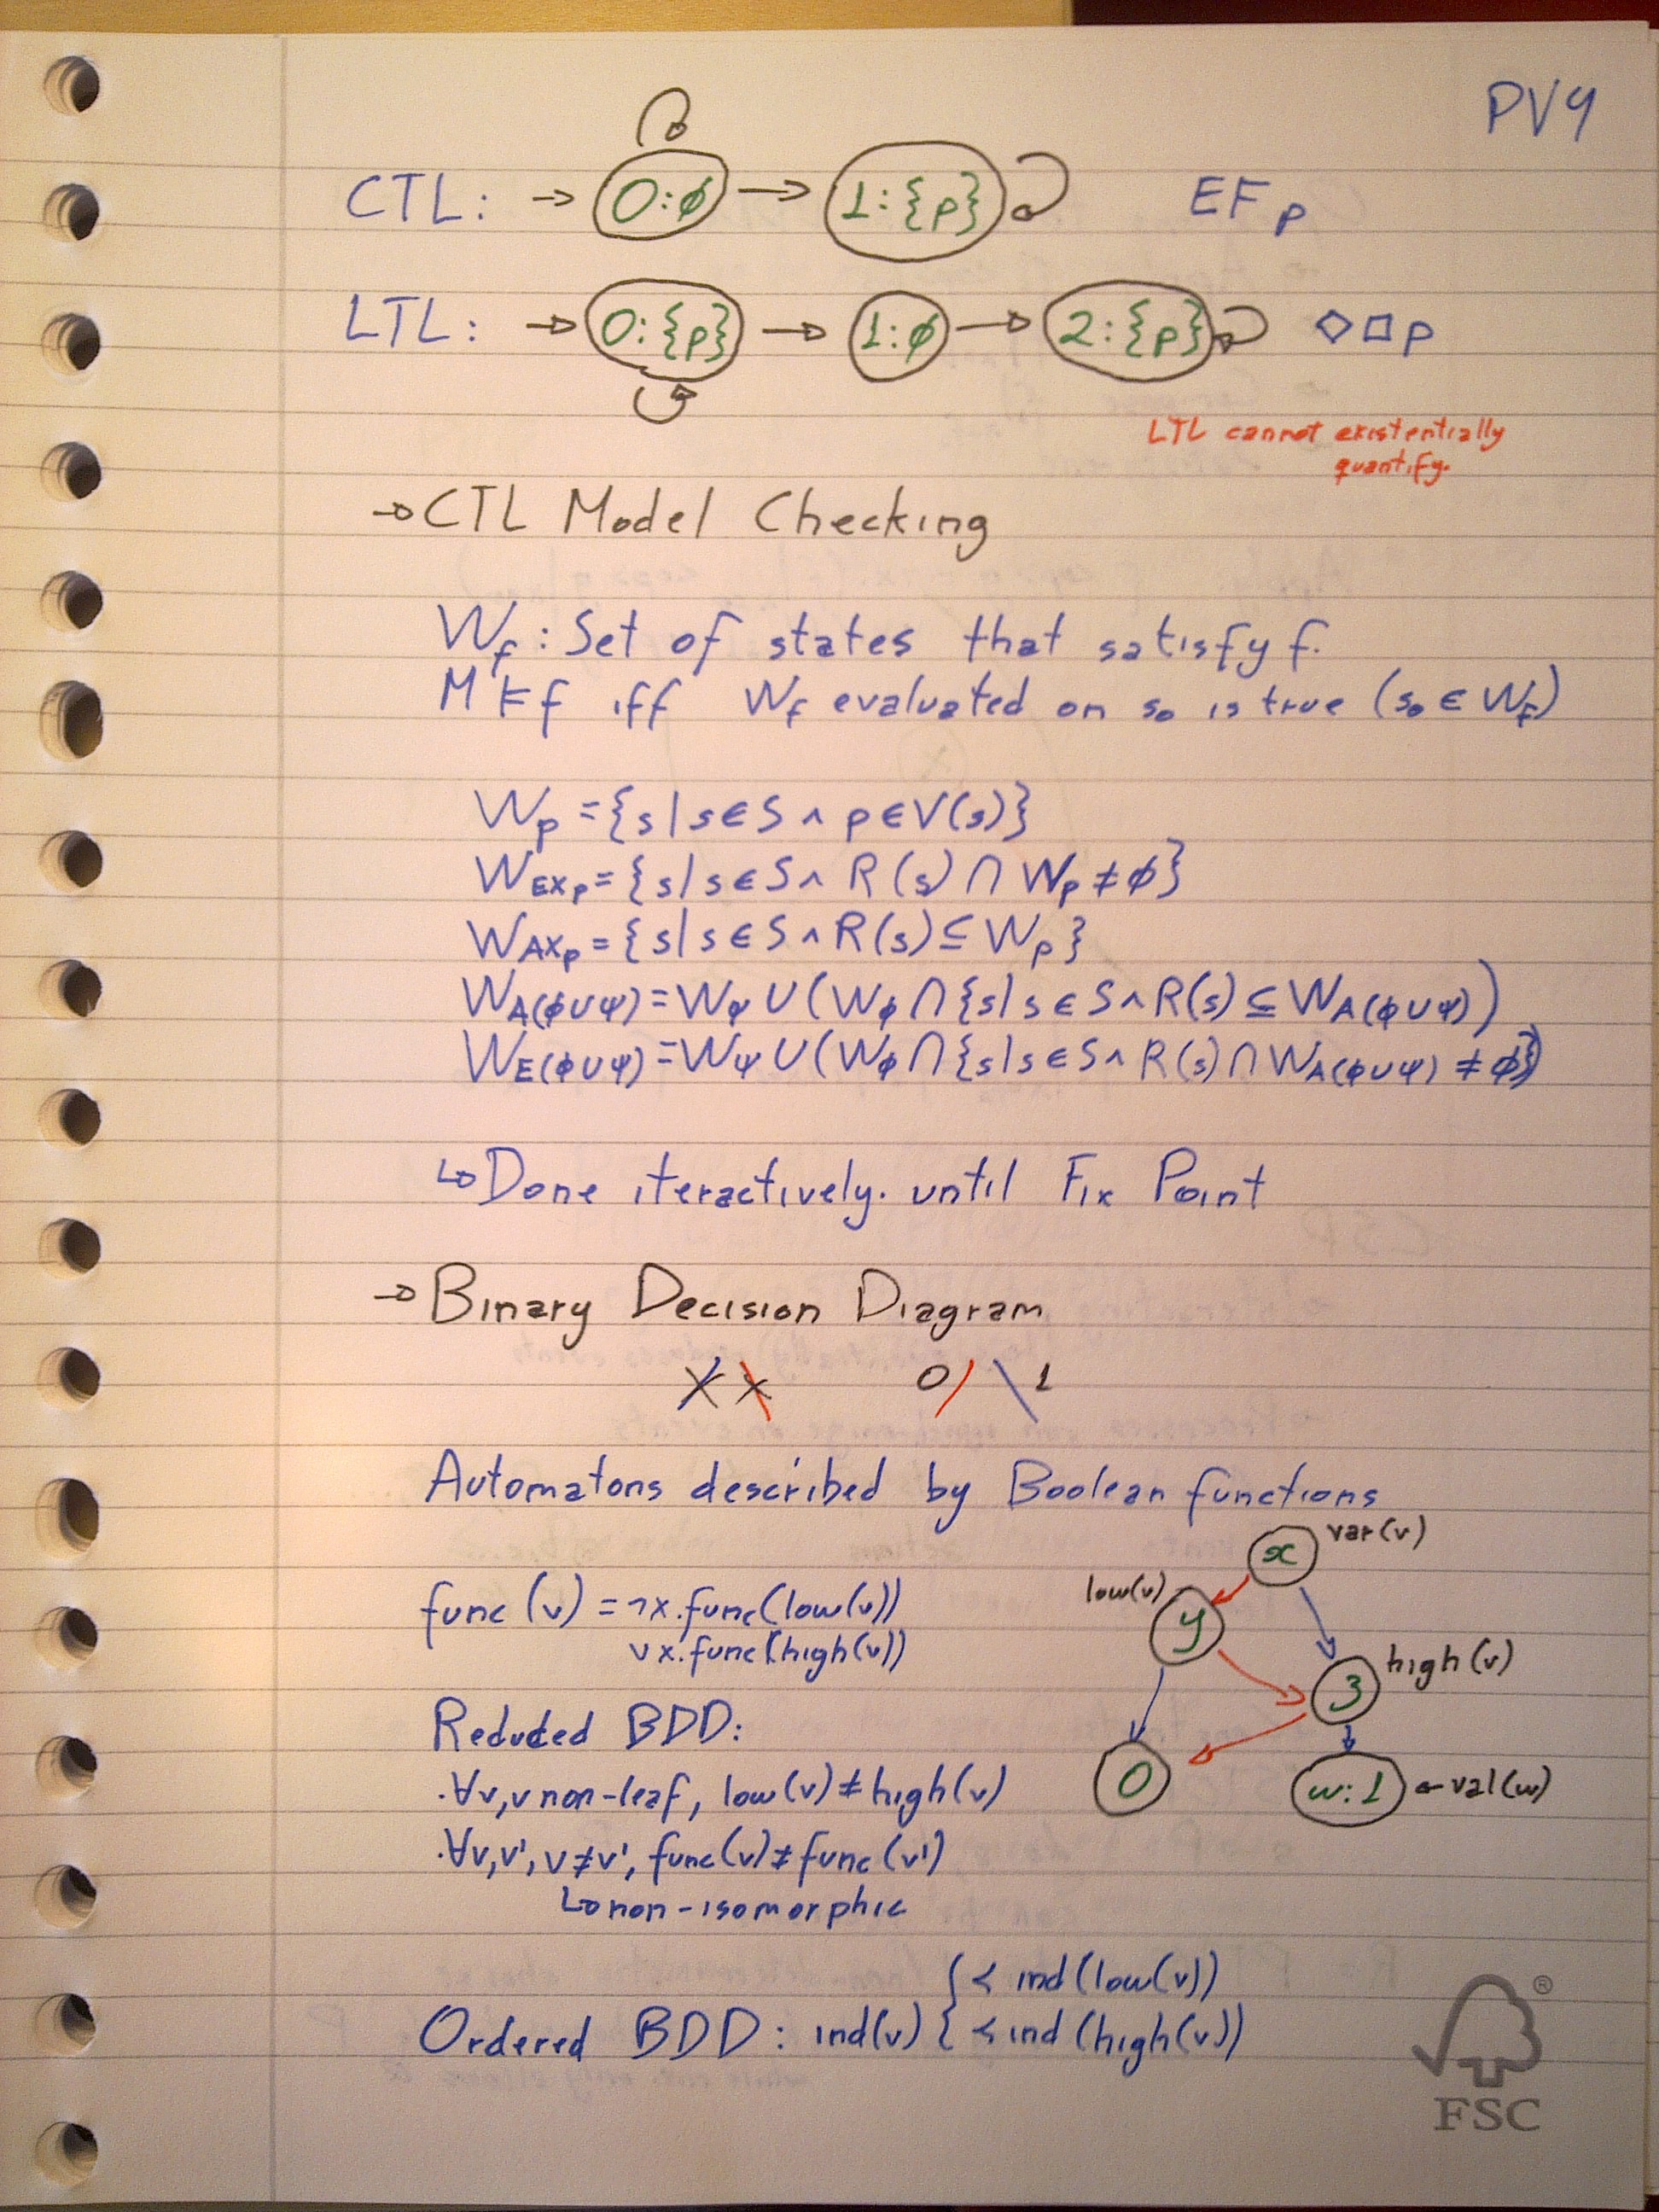 PV4
CTL: → 0:∅ → 1:{p} EFp
LTL: → 0:{p} → 1:∅ → 2:{p} ◇□p
LTL cannot existentially
quantify.
→ CTL Model Checking
W_f : Set of states that satisfy f.
M ⊨ f iff W_f evaluated on s₀ is true (s₀ ∈ W_f)
W_p = {s | s ∈ S ∧ p ∈ V(s)}
W_EXp = {s | s ∈ S ∧ R(s) ∩ W_p ≠ ∅}
W_AXp = {s | s ∈ S ∧ R(s) ⊆ W_p}
W_A(ϕUψ) = W_ψ ∪ (W_ϕ ∩ {s | s ∈ S ∧ R(s) ⊆ W_A(ϕUψ))
W_E(ϕUψ) = W_ψ ∪ (W_ϕ ∩ {s | s ∈ S ∧ R(s) ∩ W_A(ϕUψ) ≠ ∅})
↳ Done iteractively. until Fix Point
→ Binary Decision Diagram
0/ \1
Automatons described by Boolean functions
x var(v)
low(v) y
func(v) = ¬x.func(low(v))
∨ x.func(high(v))
3 high(v)
Reduced BDD:
0 w:1 ← val(w)
.∀v, v non-leaf, low(v) ≠ high(v)
.∀v,v', v ≠ v', func(v) ≠ func(v')
↳ non-isomorphic
Ordered BDD: ind(v) { < ind(low(v))
< ind(high(v))
®
FSC